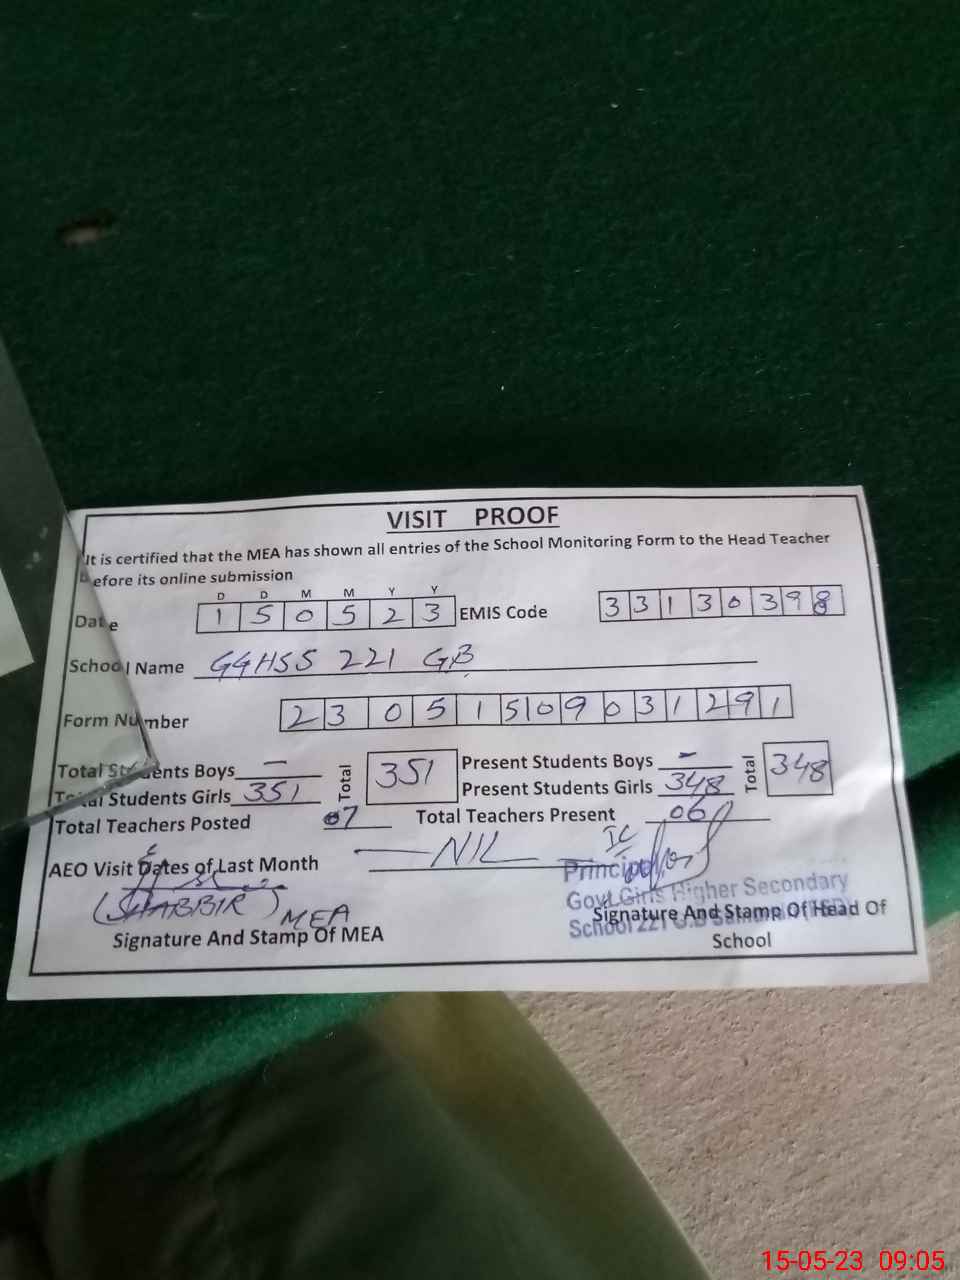 VISIT PROOF
It is certified that the MEA has shown all entries of the School Monitoring Form to the Head Teacher
before its online submission
D D M M Y Y
Date 1 5 0 5 2 3 EMIS Code 3 3 1 3 0 3 9 8
School Name GGHSS 221 GB
Form Number 2 3 0 5 1 5 0 9 0 3 1 2 9 1
Total Students Boys — Total 351 Present Students Boys - Total 348
Total Students Girls 351 Present Students Girls 348
Total Teachers Posted 07 Total Teachers Present 06
AEO Visit Dates of Last Month — NIL —
(SHABBIR) MEA
Signature And Stamp Of MEA
Principal
Govt. Girls Higher Secondary
School 221 G.B
Signature And Stamp Of Head Of
School
15-05-23 09:05